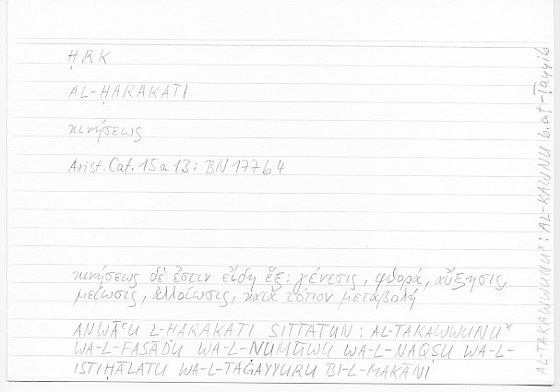 ḤRK
AL-ḤARAKATI
κινήσεως
Arist. Cat. 15a13: BN 177b4
κινήσεως δέ ἐστιν εἴδη ἕξ: γένεσις, φθορά, αὔξησις,
μείωσις, ἀλλοίωσις, κατὰ τόπον μεταβολή
ANWĀʿU L-ḤARAKATI SITTATUN: AL-TAKAWWUNU*
WA-L-FASĀDU WA-L-NUMŪWU WA-L-NAQṢU WA-L-
ISTIḤĀLATU WA-L-TAĠAYYURU BI-L-MAKĀNI
AL-TAKAWWUNU*: AL-KAWNU b. aṭ-Ṭayyib